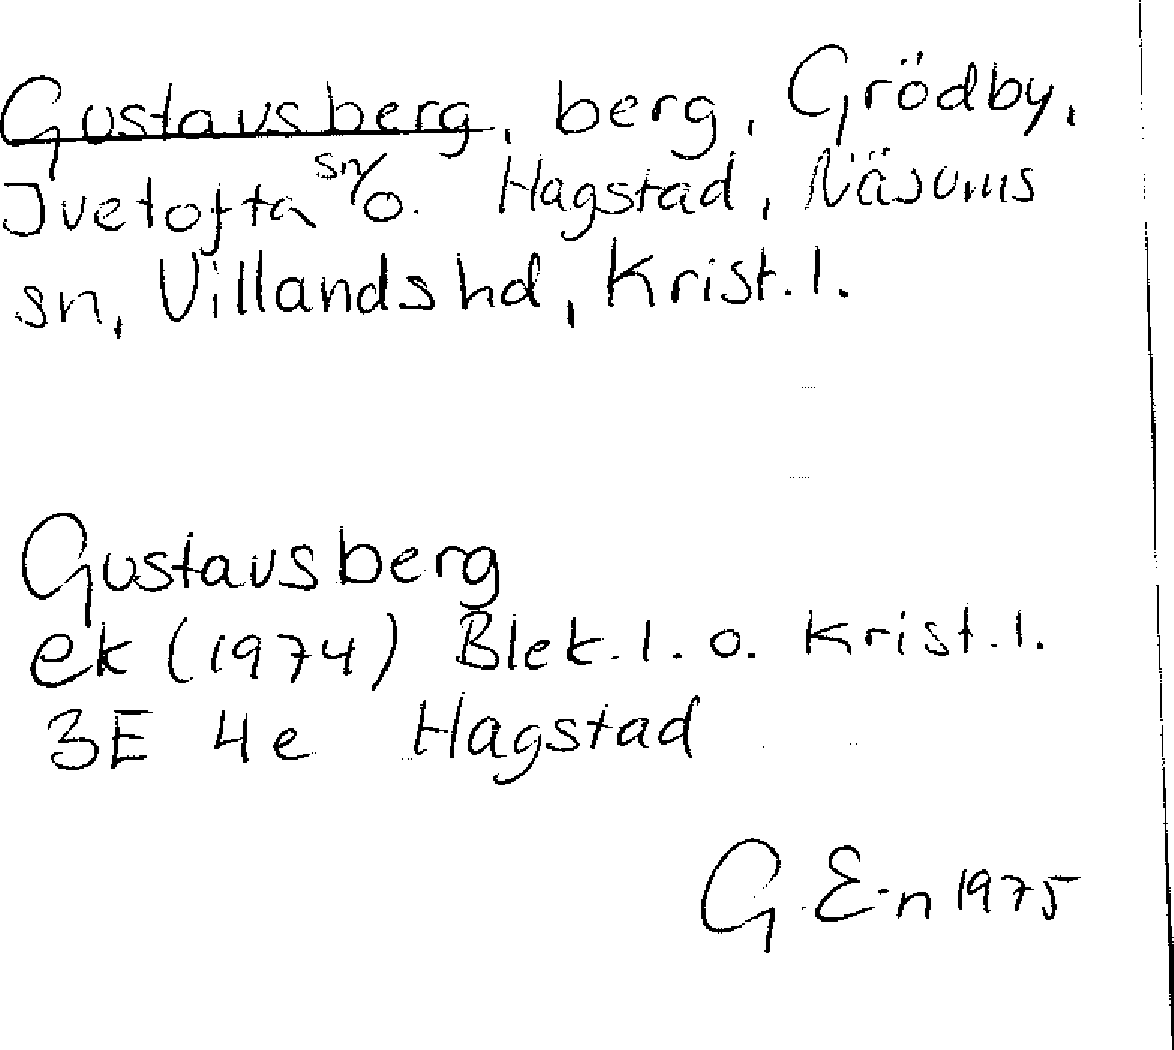 Gustavsberg, berg, Grödby,
Ivetofta sn o. Hagstad, Näsums
sn, Villands hd, Krist. l.
Gustavsberg
ek (1974) Blek. l. o. Krist. l.
3E 4e Hagstad
G E-n 1975